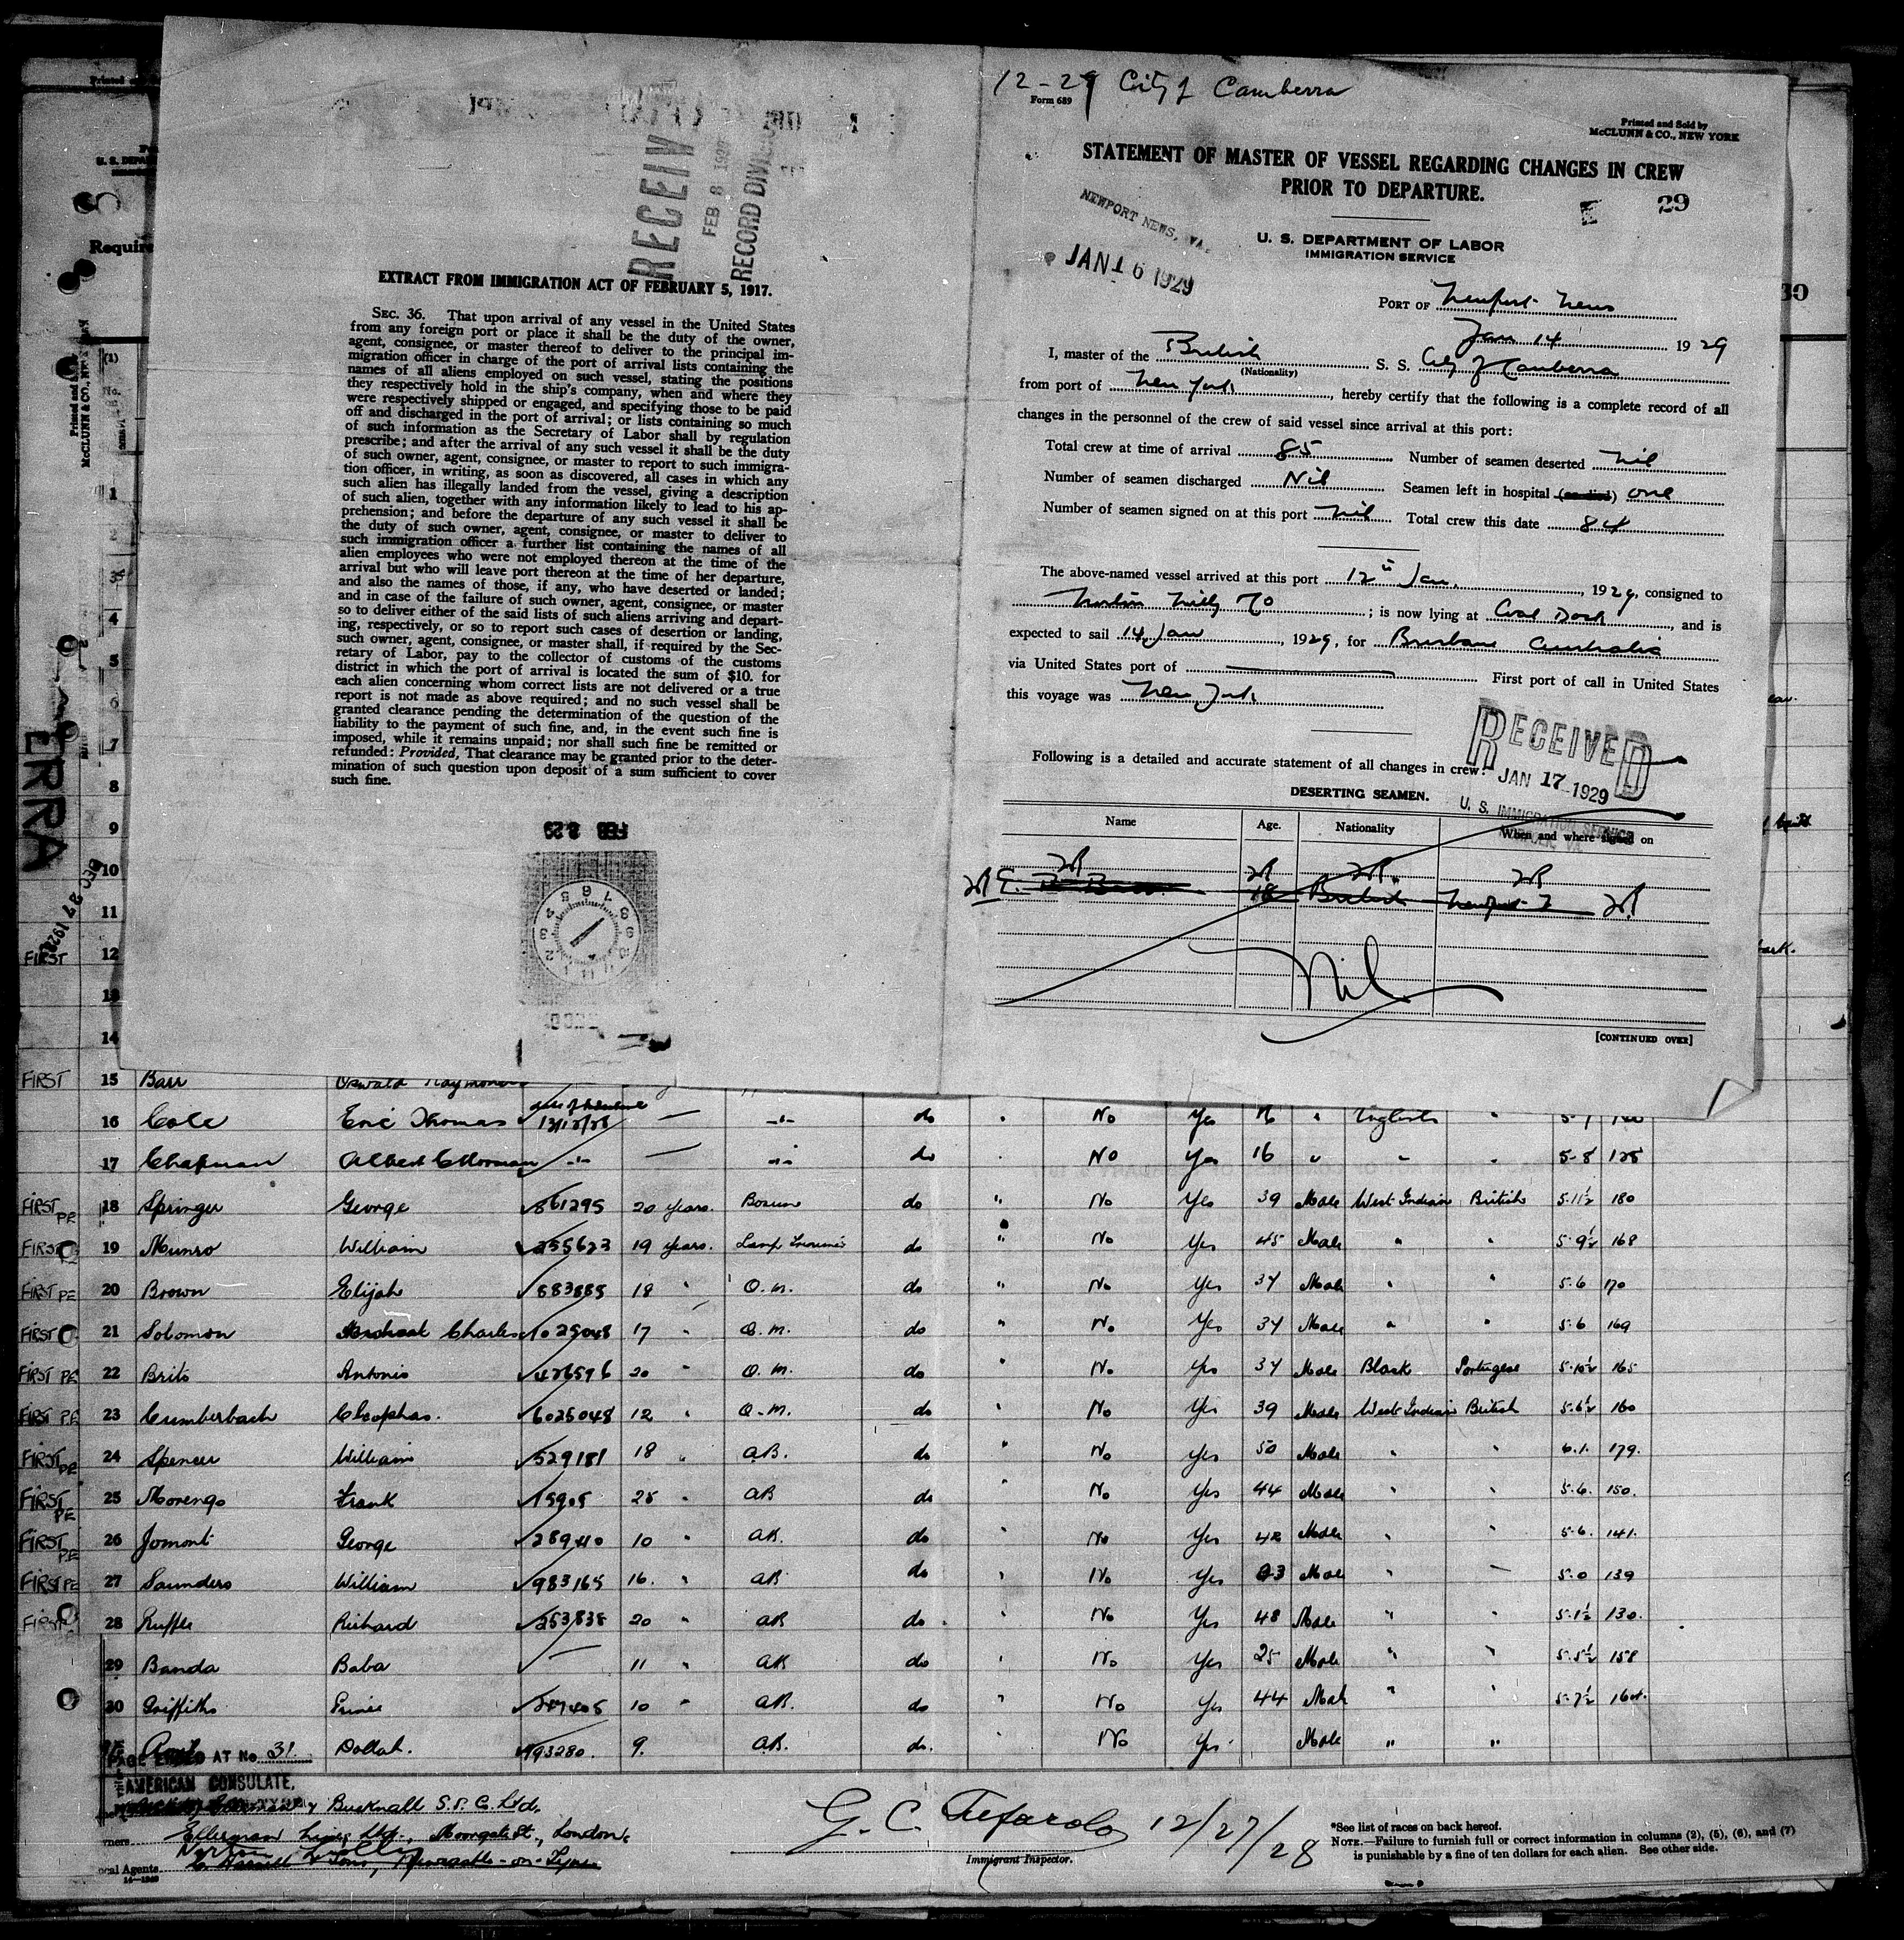 12-29 City of Camberra
Form 689
Printed and Sold by
McCLUNN & CO., NEW YORK
STATEMENT OF MASTER OF VESSEL REGARDING CHANGES IN CREW
PRIOR TO DEPARTURE.
29
NEWPORT NEWS, VA.
JAN 16 1929
U. S. DEPARTMENT OF LABOR
IMMIGRATION SERVICE
PORT OF Newport News
Jan 14 1929
I, master of the British S. S. City of Canberra
(Nationality)
from port of New York, hereby certify that the following is a complete record of all
changes in the personnel of the crew of said vessel since arrival at this port:
Total crew at time of arrival 85 Number of seamen deserted Nil
Number of seamen discharged Nil Seamen left in hospital one
Number of seamen signed on at this port Nil Total crew this date 84
The above-named vessel arrived at this port 12th Jan, 1929, consigned to
Norton Lilly Co; is now lying at Coal Dock, and is
expected to sail 14 Jan, 1929, for Brisbane Australia
via United States port of First port of call in United States
this voyage was New York
RECEIVED
JAN 17 1929
U. S. IMMIGRATION SERVICE
Following is a detailed and accurate statement of all changes in crew:
DESERTING SEAMEN.
Name Age. Nationality When and where signed on
18 British
Nil
[CONTINUED OVER]
RECEIV
FEB 8 1929
RECORD DIVISIO
EXTRACT FROM IMMIGRATION ACT OF FEBRUARY 5, 1917.
SEC. 36. That upon arrival of any vessel in the United States
from any foreign port or place it shall be the duty of the owner,
agent, consignee, or master thereof to deliver to the principal im-
migration officer in charge of the port of arrival lists containing the
names of all aliens employed on such vessel, stating the positions
they respectively hold in the ship's company, when and where they
were respectively shipped or engaged, and specifying those to be paid
off and discharged in the port of arrival; or lists containing so much
of such information as the Secretary of Labor shall by regulation
prescribe; and after the arrival of any such vessel it shall be the duty
of such owner, agent, consignee, or master to report to such immigra-
tion officer, in writing, as soon as discovered, all cases in which any
such alien has illegally landed from the vessel, giving a description
of such alien, together with any information likely to lead to his ap-
prehension; and before the departure of any such vessel it shall be
the duty of such owner, agent, consignee, or master to deliver to
such immigration officer a further list containing the names of all
alien employees who were not employed thereon at the time of the
arrival but who will leave port thereon at the time of her departure,
and also the names of those, if any, who have deserted or landed;
and in case of the failure of such owner, agent, consignee, or master
so to deliver either of the said lists of such aliens arriving and depart-
ing, respectively, or so to report such cases of desertion or landing,
such owner, agent, consignee, or master shall, if required by the Sec-
retary of Labor, pay to the collector of customs of the customs
district in which the port of arrival is located the sum of $10. for
each alien concerning whom correct lists are not delivered or a true
report is not made as above required; and no such vessel shall be
granted clearance pending the determination of the question of the
liability to the payment of such fine, and, in the event such fine is
imposed, while it remains unpaid; nor shall such fine be remitted or
refunded: Provided, That clearance may be granted prior to the deter-
mination of such question upon deposit of a sum sufficient to cover
such fine.
FEB 8 29
Require
ERRA
DEC 27 1928
1
4
5
6
7
8
9
10
11
FIRST 12
13
14
FIRST 15 Barr Oswald Raymond
16 Cole Eric Thomas 13/12/28 do No Yes 16 " English "
17 Chapman Albert do No Yes 16 " " " 5-8 125
FIRST PE 18 Springer George 861295 20 years. Bosun do " No Yes 39 Male West Indian British 5-11½ 180
FIRST 19 Munro William 255623 19 years. Lamp Trimmer do " No Yes 45 Male " " 5-9½ 168
FIRST PE 20 Brown Elijah 883885 18 " Q.M. do " No Yes 34 Male " " 5-6 170
FIRST 21 Solomon Charles 1025048 17 " Q.M. do " No Yes 34 Male " " 5-6 169
FIRST PE 22 Brito Antonio 426596 20 " Q.M. do " No Yes 34 Male Black Portugese 5-10½ 165
FIRST PE 23 Cumberbach Cleophas. 6025048 12 " Q.M. do " No Yes 39 Male West Indian British 5-6½ 160
FIRST PE 24 Spencer William 529181 18 " AB. do " No Yes 50 Male " " 6-1. 179.
FIRST PE 25 Morengo Frank 15905 25 " AB do " No Yes 44 Male " " 5-6. 150.
FIRST PE 26 Jomont George 289410 10 " AB. do " No Yes 42 Male " " 5-6. 141.
FIRST PE 27 Saunders William 983165 16. " AB do " No Yes Male " 5-0 139
FIRST 28 Ruffle Richard 253838 20 " AB do " No Yes 48 Male " " 5-1½ 130.
29 Banda Baba 11 " AB do " No Yes 25 Male " " 5-5½ 158
30 Griffiths Prince 10 " AB. do " No Yes 44 Male " " 5-7½ 164.
Dollah. 993280. 9. AB. do. No Yes Male " "
PAGE ENDED AT No 31.
AMERICAN CONSULATE,
& Bucknall S.S. Co. Ltd.
Owners Ellerman Lines Ltd., Moorgate St., London
Norton Lilly
Local Agents & Sons, Newcastle-on-Tyne
G. C. 12/27/28
Immigrant Inspector.
*See list of races on back hereof.
NOTE.—Failure to furnish full or correct information in columns (2), (5), (6), and (7)
is punishable by a fine of ten dollars for each alien. See other side.